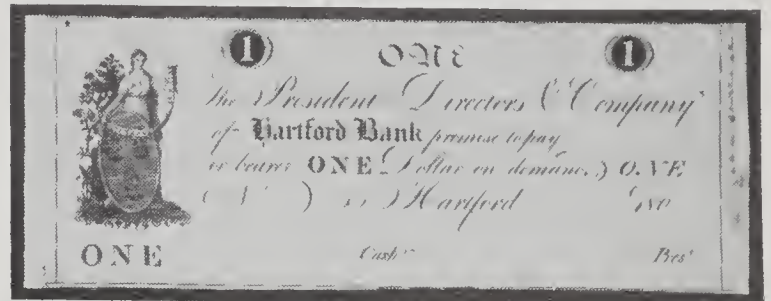 1 ONE 1
The President Directors & Company
of Hartford Bank promise to pay
or bearer ONE Dollar on demand ONE
Hartford 180
ONE Cashr Prest